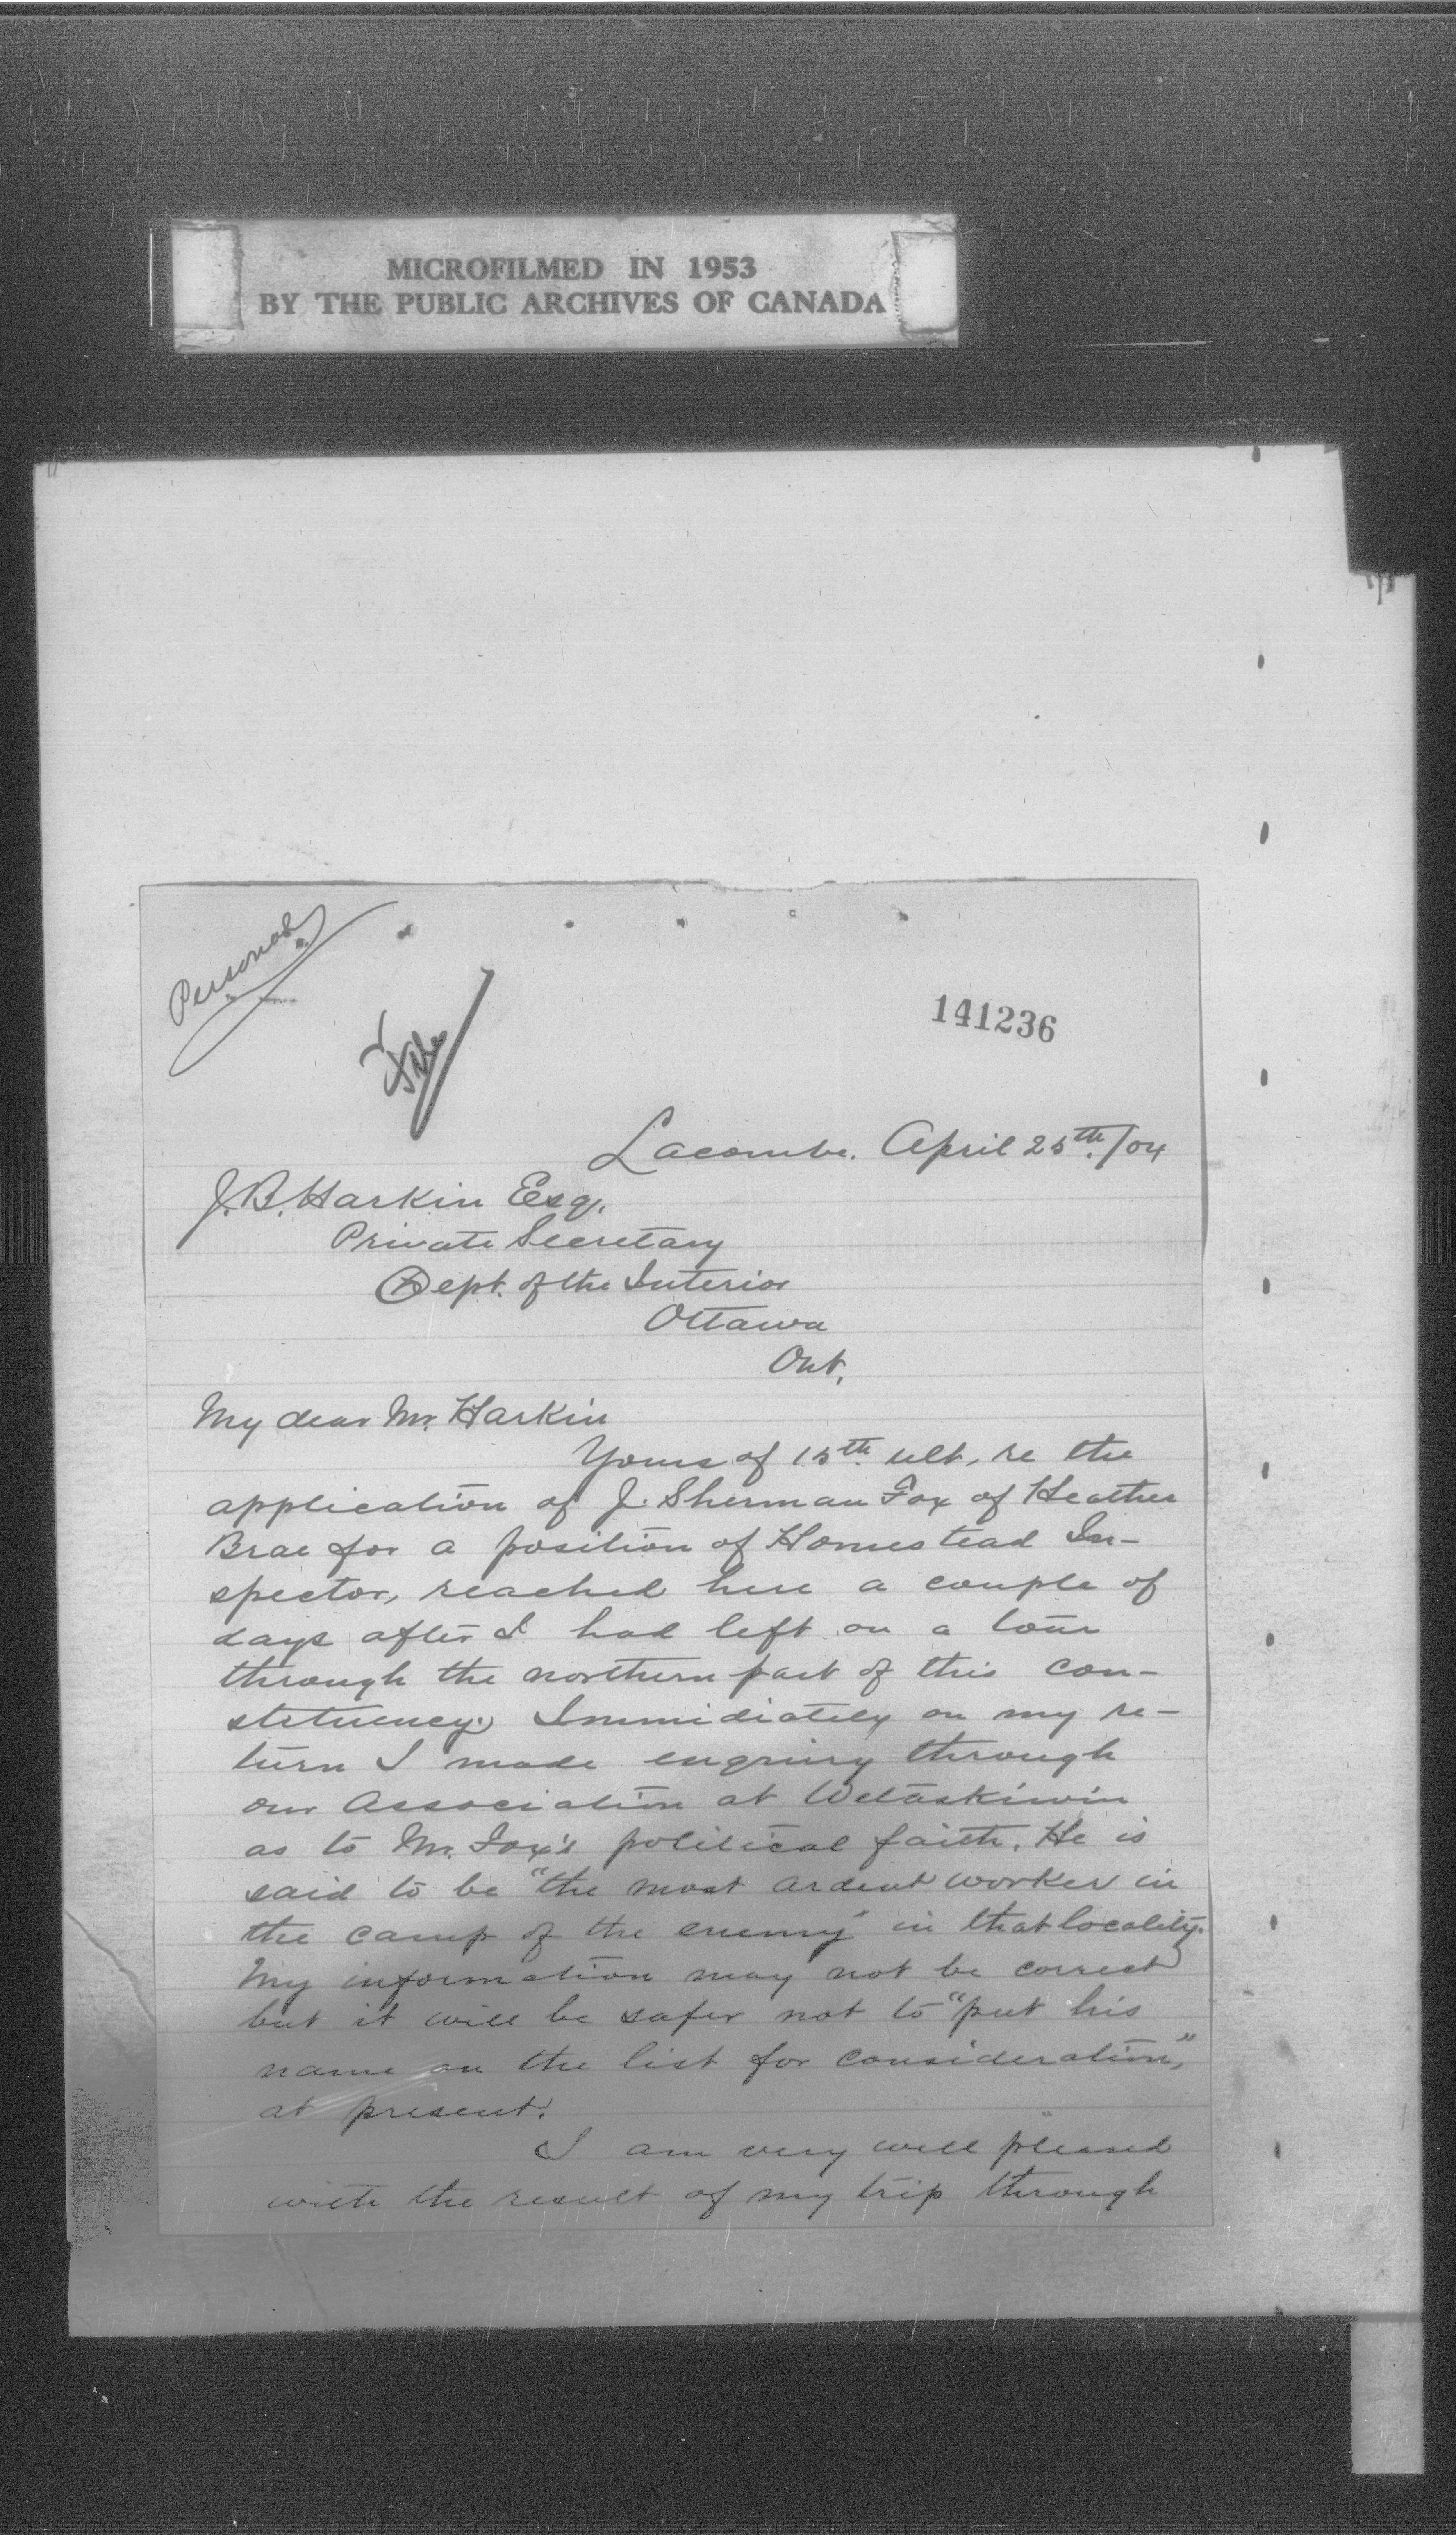 MICROFILMED IN 1953
BY THE PUBLIC ARCHIVES OF CANADA
Personal
File
141236
Lacombe. April 25th./04
J. B. Harkin Esq.
Private Secretary
Dept. of the Interior
Ottawa
Ont.
My dear Mr. Harkin
Yours of 15th ult, re the
application of J. Sherman Fox of Heather
Brae for a position of Homestead In-
spector, reached here a couple of
days after I had left on a tour
through the northern part of this con-
stituency. Immidiately on my re-
turn I made enquiry through
our Association at Wetaskiwin
as to Mr. Fox's political faith. He is
said to be "the most ardent worker in
the camp of the enemy" in that locality.
My information may not be correct
but it will be safer not to "put his
name on the list for consideration,"
at present.
I am very well pleased
with the result of my trip through